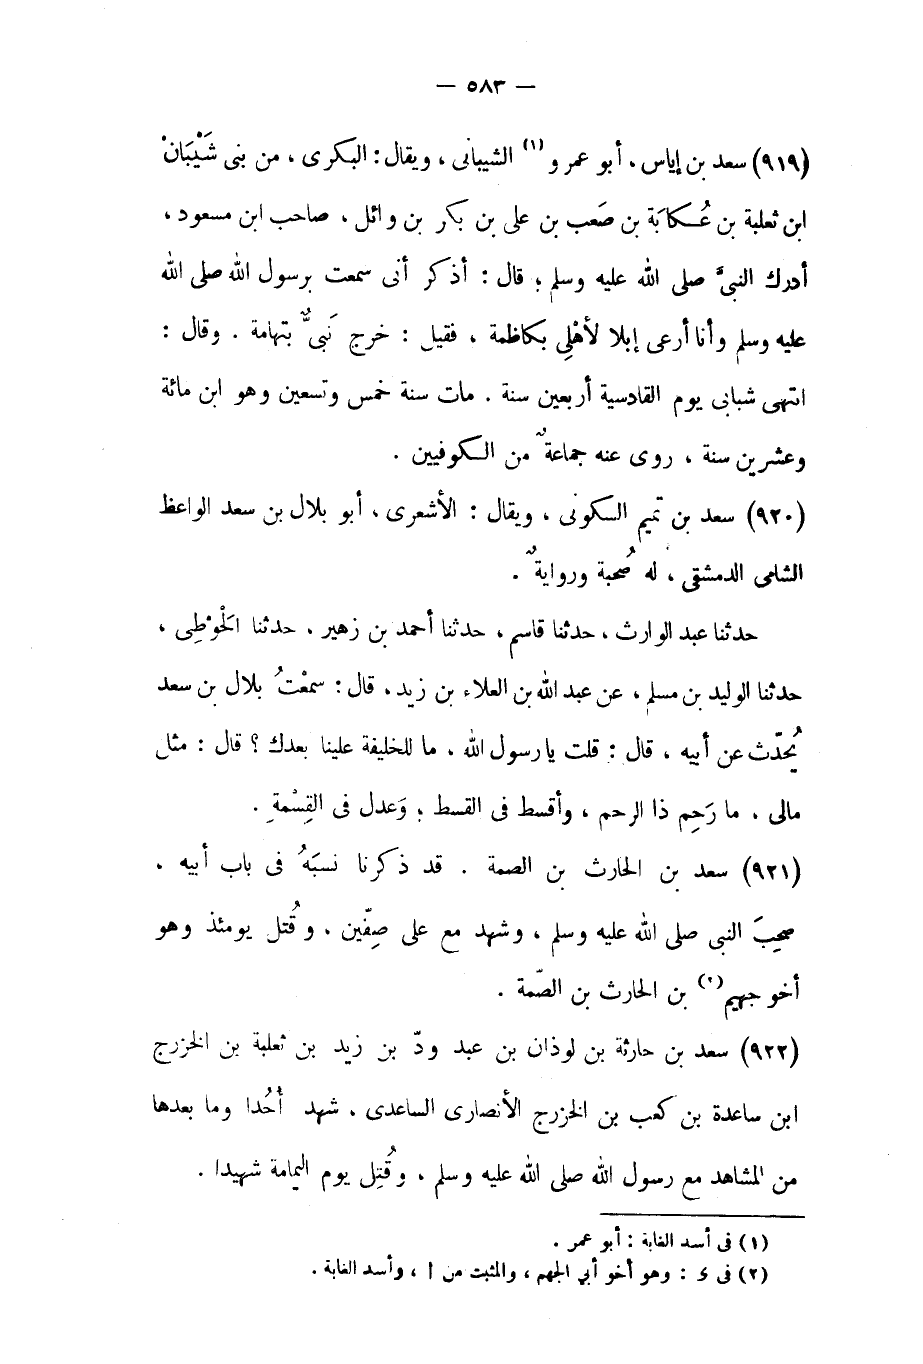 — ٥٨٣ —
(٩١٩) سعد بن إياس ، أبو عمرو (١) الشيبانى ، ويقال : البكرى ، من بنى شَيْبَانْ
ابن ثعلبة بن عُكابَة بن صَعب بن على بن بكر بن وائل ، صاحب ابن مسعود ،
أدرك النبىَّ صلى الله عليه وسلم ؛ قال : أذكر أنى سمعت برسول الله صلى الله
عليه وسلم وأنا أرعى إبلا لأهْلِى بكاظمة ، فقيل : خرج نَبىٌّ بتهامة . وقال :
انتهى شبابى يوم القادسية أربعين سنة . مات سنة خمس وتسعين وهو ابن مائة
وعشرين سنة ، روى عنه جماعةٌ من الكوفيين .
(٩٢٠) سعد بن تميم السكونى ، ويقال : الأشعرى ، أبو بلال بن سعد الواعظ
الشامى الدمشقى ، له صُحبة وروايةٌ .
حدثنا عبد الوارث ، حدثنا قاسم ، حدثنا أحمد بن زهير ، حدثنا الحَوْطِى ،
حدثنا الوليد بن مسلم ، عن عبد الله بن العلاء بن زيد ، قال : سمعْتُ بلال بن سعد
يُحَدّث عن أبيه ، قال : قلت يا رسول الله ، ما للخليفة علينا بعدك ؟ قال : مثل
مالى ، ما رَحِم ذا الرحم ، وأقسط فى القسط ؛ وَعدل فى القِسْمةِ .
(٩٢١) سعد بن الحارث بن الصمة . قد ذكرنا نسبَهُ فى باب أبيه .
صحِبَ النبى صلى الله عليه وسلم ، وشهد مع على صِفّين ، وقُتل يومئذ وهو
أخو جهيم (٢) بن الحارث بن الصّمة .
(٩٢٢) سعد بن حارثة بن لوذان بن عبد ودّ بن زيد بن ثعلبة بن الخزرج
ابن ساعدة بن كعب بن الخزرج الأنصارى الساعدى . شهد أُحُدا وما بعدها
من المشاهد مع رسول الله صلى الله عليه وسلم ، وقُتِل يوم اليمامة شهيدا .
(١) فى أسد الغابة : أبو عمر .
(٢) فى ى : وهو أخو أبي الجهم ، والمثبت من ا ، وأسد الغابة .